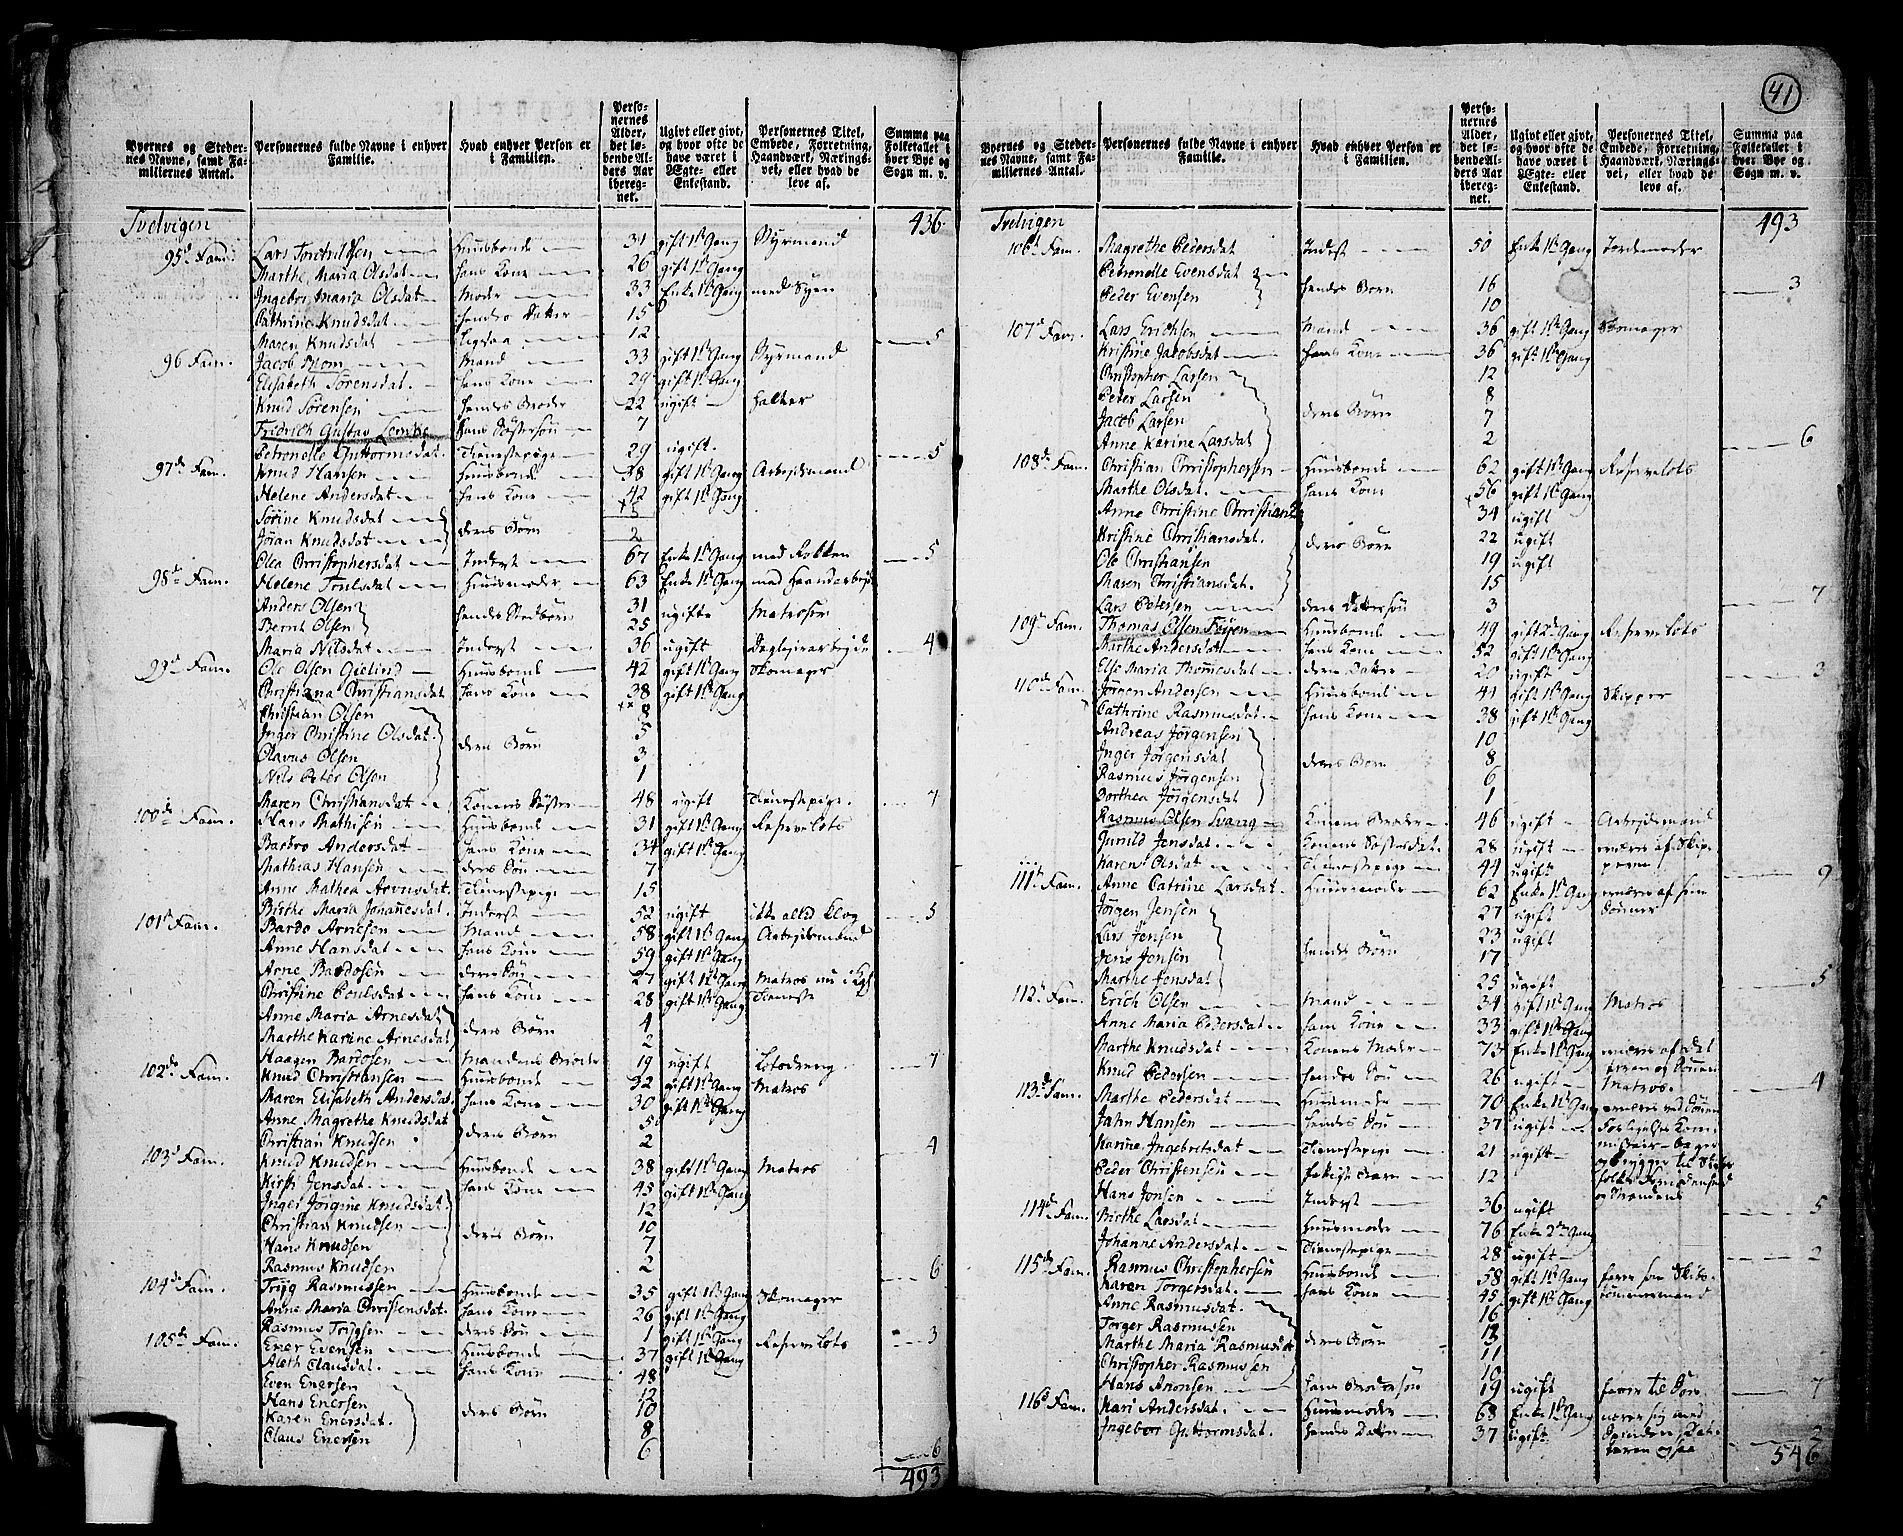 41
Byernes og Stedernes Navne, samt Familiernes Antal. Personernes fulde Navne i enhver Familie. Hvad enhver Person er i Familien. Personernes Alder, det løbende Alders Aar iberegnet. Ugivt eller givt, og hvor ofte de have været i Ægte- eller Enkestand. Personernes Titel, Embede, Forretning, Haandværk, Næringsvei, eller hvad de leve af. Summa paa Folketallet i hver Bye og Sogn m. v.
Svelvigen 436
95de Fam: Lars Huusbonde 31 gift 1ste Gang Styrmand
Marthe Maria Olsdat hans Kone 26 gift 1ste Gang
Ingebor Maria Olsdat Moder 33 Enke 1ste Gang med Syen
Cathrine Knudsdat hendes Datter 15
Maren Knudsdat ligesaa 12 5
96 Fam. Jacob Mand 33 gift 1ste Gang Styrmand
Elisabeth Sørensdat hans Kone 29 gift 1ste Gang
Knud Sørensen hendes Broder 22 ugift
Fridrich Gustav Lemke hans Søstersøn 7
Petronelle Guttormsdat Tienestepige 29 ugift 5
97de Fam. Knud Hansen Huusbonde 38 gift 1ste Gang Arbejdsmand
Helene Andersdat hans Kone 42 gift 1ste Gang
Sørine Knudsdat 5
Jøran Knudsdat deres Børn 2
Olea Christophersdat Inderst 67 Enke 1ste Gang med Rokken 5
98de Fam. Helene Trulsdat Huusmoder 63 Enke 1ste Gang med Haandarbejd
Anders Olsen hendes Stedbørn 31 ugifte Matroser
Bernt Olsen 25
Maria Nilsdat Inderst 36 ugift Daglejearbejde 4
99de Fam. Ole Olsen Huusbonde 42 gift 1ste Gang Skomager
Christiana Christiansdat hans Kone 38 gift 1ste Gang
Christian Olsen 8
Inger Christine Olsdat deres Børn 5
Olavus Olsen 3
Nils Peter Olsen 1
Maren Christiansdat Konens Søster 48 ugift Tienestepige 7
100de Fam. Hans Mathisen Huusbonde 31 gift 1ste Gang Reservelots
Barbro Andersdat hans Kone 34 gift 1ste Gang
Mathias Hansen deres Søn 7
Anne Mathea Tienestepige 15
Birthe Maria Johannesdat Inderst 52 ugift ikke altid klog 5
101de Fam. Bardo Arnesen Mand 58 gift 1ste Gang Arbejdsmand
Anne Hansdat hans Kone 59 gift 1ste Gang
Arne Bardosen deres Søn 27 gift 1ste Gang Matros nu i Kgl
Christine Poulsdat hans Kone 28 gift 1ste Gang Tieneste
Anne Maria Arnesdat deres Børn 4
Marthe Karine Arnesdat 2
Haagen Bardosen Mandens Broder 19 ugift Lotsdreng 7
102de Fam. Knud Christiansen Huusbonde 32 gift 1ste Gang Matros
Maren Elisabeth Andersdat hans Kone 30 gift 1ste Gang
Anne Magrethe Knudsdat deres Børn 5
Christian Knudsen 2 4
103de Fam. Knud Knudsen Huusbonde 38 gift 1ste Gang Matros
Kirsti Jensdat hans Kone 45 gift 1ste Gang
Inger Jørgine Knudsdat 12
Christian Knudsen deres Børn 10
Hans Knudsen 7
Rasmus Knudsen 2 6
104de Fam. Tryg Rasmussen Huusbonde 35 gift 1ste Gang Skomager
Anne Maria Christensdat hans Kone 26 gift 1ste Gang
Rasmus Trygsen deres Søn 1 3
105de Fam. Ener Evensen Huusbonde 37 gift 1ste Gang Reservelots
Aleth Clausdat hans Kone 48 gift 1ste Gang
Even Enersen 12
Hans Enersen deres Børn 10
Karen Enersdat 8
Claus Enersen 6 6
493
Byernes og Stedernes Navne, samt Familiernes Antal. Personernes fulde Navne i enhver Familie. Hvad enhver Person er i Familien. Personernes Alder, det løbende Alders Aar iberegnet. Ugivt eller givt, og hvor ofte de have været i Ægte- eller Enkestand. Personernes Titel, Embede, Forretning, Haandværk, Næringsvei, eller hvad de leve af. Summa paa Folketallet i hver Bye og Sogn m. v.
Svelvigen 493
106te Fam. Magrethe Pedersdat Inderst 50 Enke 1ste Gang Jordemoder
Petronelle Evensdat hendes Børn 16
Peder Evensen 10 3
107de Fam. Lars Erichsen Mand 36 gift 1ste Gang Skomager
Kristine Jacobsdat hans Kone 36 gift 1ste Gang
Christopher Larsen 12
Peter Larsen deres Børn 8
Jacob Larsen 7
Anne Karine Larsdat 2 6
108de Fam. Christian Christophersen Huusbonde 62 gift 1ste Gang Reservelots
Marthe Olsdat hans Kone 56 gift 1ste Gang
Anne Christine Christiansd 34 ugift
Kristine Christiansdat deres Børn 22 ugift
Ole Christiansen 19 ugift
Maren Christiansdat 15
Lars Petersen deres Dattersøn 3 7
109de Fam. Thomas Olsen Huusbonde 49 gift 2den Gang Reservelots
Marthe Andersdat hans Kone 52 gift 1ste Gang
Else Maria Thomesdat deres Datter 20 ugift 3
110de Fam. Jørgen Andersen Huusbonde 41 gift 1ste Gang Skipper
Cathrine Rasmusdat hans Kone 38 gift 1ste Gang
Andreas Jørgensen 10
Inger Jørgensdat deres Børn 8
Rasmus Jørgensen 6
Dorthea Jørgensdat 1
Rasmus Olsen Svang Konens Broder 46 ugift Arbejdsmand
Gunild Jensdat Konens Søsterdat. 28 ugift næres af Skip-
Karen Olsdat Tienestepige 44 ugift perne 9
111te Fam. Anne Catrine Larsdat Huusmoder 62 Enke 1ste Gang næres af sine
Jørgen Jensen 27 ugift Sønner
Lars Jensen hendes Børn 23 ugift
Jens Jensen 17
Marthe Jensdat 25 ugift 5
112te Fam. Erich Olsen Mand 34 gift 1ste Gang Matros
Anne Maria Pedersdat hans Kone 33 gift 1ste Gang
Marthe Knudsdat Konens Moder 73 Enke 1ste Gang næres af Dat
teren og Sønnen
Knud Pedersen hendes Søn 26 ugift Matros 4
113de Fam. Marthe Pedersdat Huusmoder 70 Enke 1ste Gang næres ved Sønen
Jahn Hansen hendes Søn 37 ugift Forligelses Kom-
Karine Ingebretsdat Tienestepige 21 ugift
Peder Christensen 12
Hans Jonsen Inderst 36 ugift 5
114de Fam. Birthe Larsdat Huusmoder 76 Enke 2den Gang
Johanne Andersdat Tienestepige 28 ugift 2
115de Fam. Rasmus Christophersen Huusbonde 58 gift 1ste Gang farer som Skibs-
Karen Torgersdat hans Kone 45 gift 1ste Gang tømmermand
Anne Rasmusdat 16
Torger Rasmussen deres Børn 13
Marthe Maria Rasmusdat 11
Christopher Rasmussen 10
Hans Aronsen hans Brodersøn 19 ugift farer til Søes 7
116de Fam. Kari Andersdat Huusmoder 68 Enke 1ste Gang nærer sig med
Ingebor Guttormsdat hendes Datter 37 ugift Spinden, Dat-
teren ogsaa 2
546